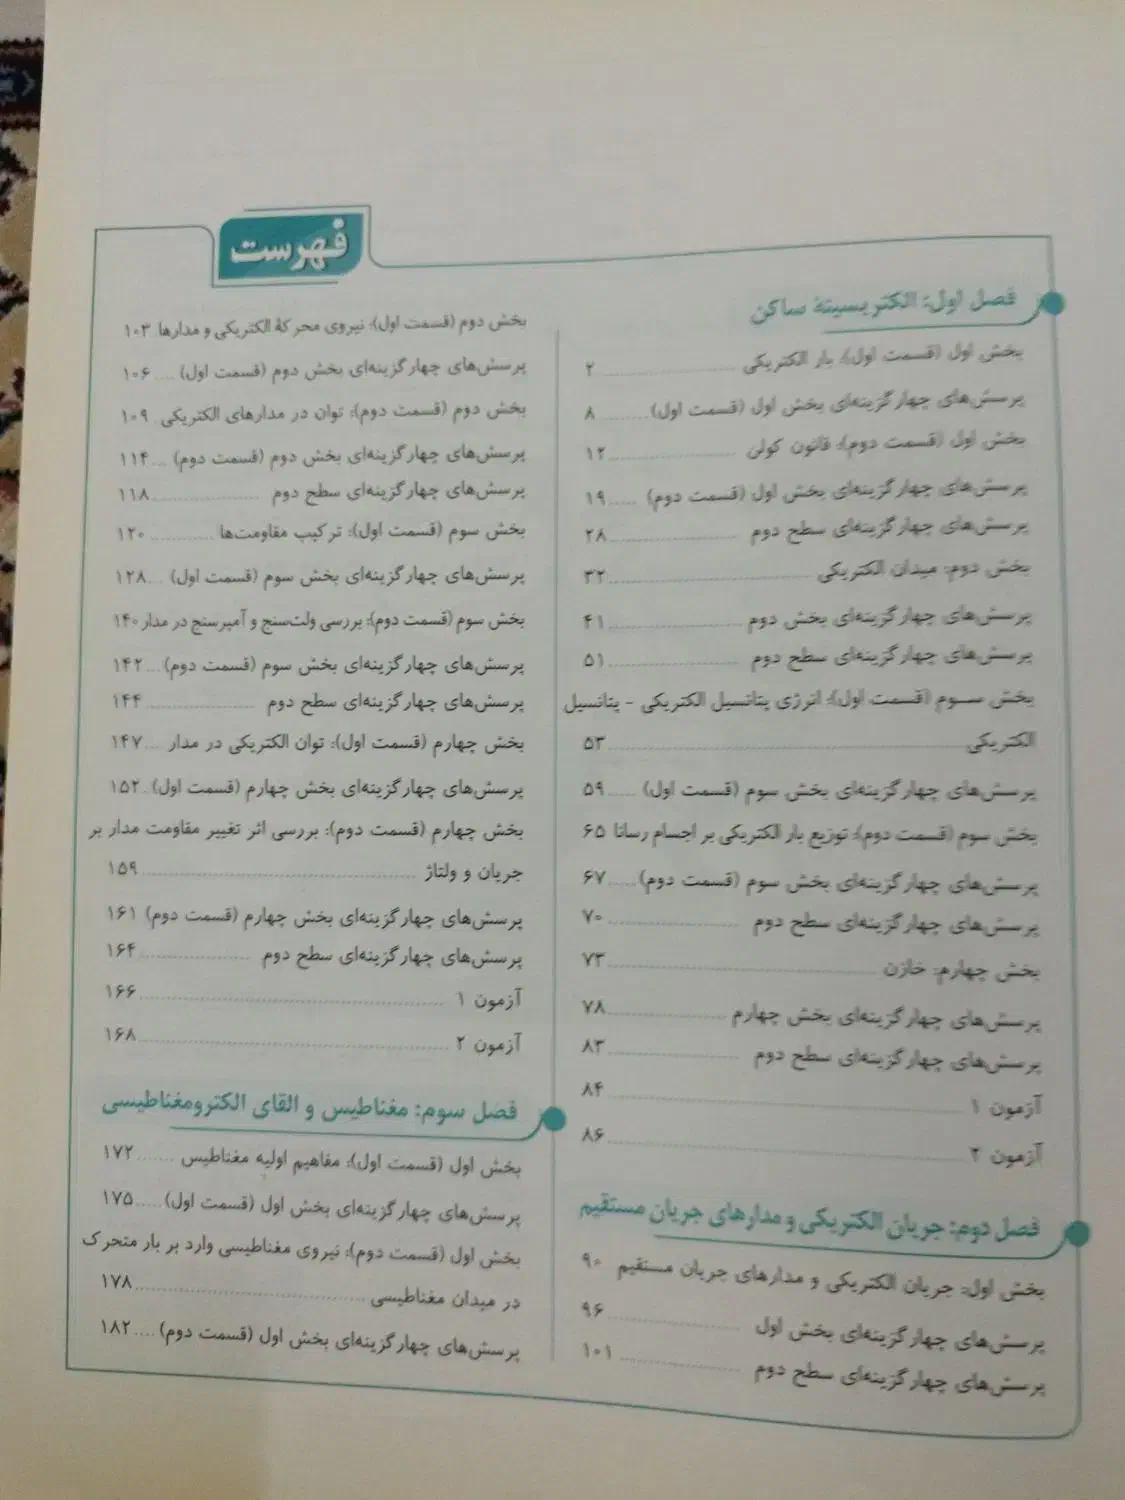 فهرست
فصل اول: الکتریسیتهٔ ساکن
بخش اول (قسمت اول): بار الکتریکی ........ ۲
پرسش‌های چهارگزینه‌ای بخش اول (قسمت اول) ........ ۸
بخش اول (قسمت دوم): قانون کولن ........ ۱۲
پرسش‌های چهارگزینه‌ای بخش اول (قسمت دوم) ..... ۱۹
پرسش‌های چهارگزینه‌ای سطح دوم ........ ۲۸
بخش دوم: میدان الکتریکی ........ ۳۲
پرسش‌های چهارگزینه‌ای بخش دوم ........ ۴۱
پرسش‌های چهارگزینه‌ای سطح دوم ........ ۵۱
بخش سوم (قسمت اول): انرژی پتانسیل الکتریکی - پتانسیل
الکتریکی ........ ۵۳
پرسش‌های چهارگزینه‌ای بخش سوم (قسمت اول) ..... ۵۹
بخش سوم (قسمت دوم): توزیع بار الکتریکی بر اجسام رسانا ۶۵
پرسش‌های چهارگزینه‌ای بخش سوم (قسمت دوم) ..... ۶۷
پرسش‌های چهارگزینه‌ای سطح دوم ........ ۷۰
بخش چهارم: خازن ........ ۷۳
پرسش‌های چهارگزینه‌ای بخش چهارم ........ ۷۸
پرسش‌های چهارگزینه‌ای سطح دوم ........ ۸۳
آزمون ۱ ........ ۸۴
آزمون ۲ ........ ۸۶
فصل دوم: جریان الکتریکی و مدارهای جریان مستقیم
بخش اول: جریان الکتریکی و مدارهای جریان مستقیم ۹۰
پرسش‌های چهارگزینه‌ای بخش اول ........ ۹۶
پرسش‌های چهارگزینه‌ای سطح دوم ........ ۱۰۱
بخش دوم (قسمت اول): نیروی محرکهٔ الکتریکی و مدارها ۱۰۳
پرسش‌های چهارگزینه‌ای بخش دوم (قسمت اول) .... ۱۰۶
بخش دوم (قسمت دوم): توان در مدارهای الکتریکی . ۱۰۹
پرسش‌های چهارگزینه‌ای بخش دوم (قسمت دوم) ... ۱۱۴
پرسش‌های چهارگزینه‌ای سطح دوم ........ ۱۱۸
بخش سوم (قسمت اول): ترکیب مقاومت‌ها ........ ۱۲۰
پرسش‌های چهارگزینه‌ای بخش سوم (قسمت اول) ... ۱۲۸
بخش سوم (قسمت دوم): بررسی ولت‌سنج و آمپرسنج در مدار ۱۴۰
پرسش‌های چهارگزینه‌ای بخش سوم (قسمت دوم) ... ۱۴۲
پرسش‌های چهارگزینه‌ای سطح دوم ........ ۱۴۴
بخش چهارم (قسمت اول): توان الکتریکی در مدار ... ۱۴۷
پرسش‌های چهارگزینه‌ای بخش چهارم (قسمت اول) . ۱۵۲
بخش چهارم (قسمت دوم): بررسی اثر تغییر مقاومت مدار بر
جریان و ولتاژ ........ ۱۵۹
پرسش‌های چهارگزینه‌ای بخش چهارم (قسمت دوم) ۱۶۱
پرسش‌های چهارگزینه‌ای سطح دوم ........ ۱۶۴
آزمون ۱ ........ ۱۶۶
آزمون ۲ ........ ۱۶۸
فصل سوم: مغناطیس و القای الکترومغناطیسی
بخش اول (قسمت اول): مفاهیم اولیه مغناطیس ...... ۱۷۲
پرسش‌های چهارگزینه‌ای بخش اول (قسمت اول) ..... ۱۷۵
بخش اول (قسمت دوم): نیروی مغناطیسی وارد بر بار متحرک
در میدان مغناطیسی ........ ۱۷۸
پرسش‌های چهارگزینه‌ای بخش اول (قسمت دوم) .... ۱۸۲